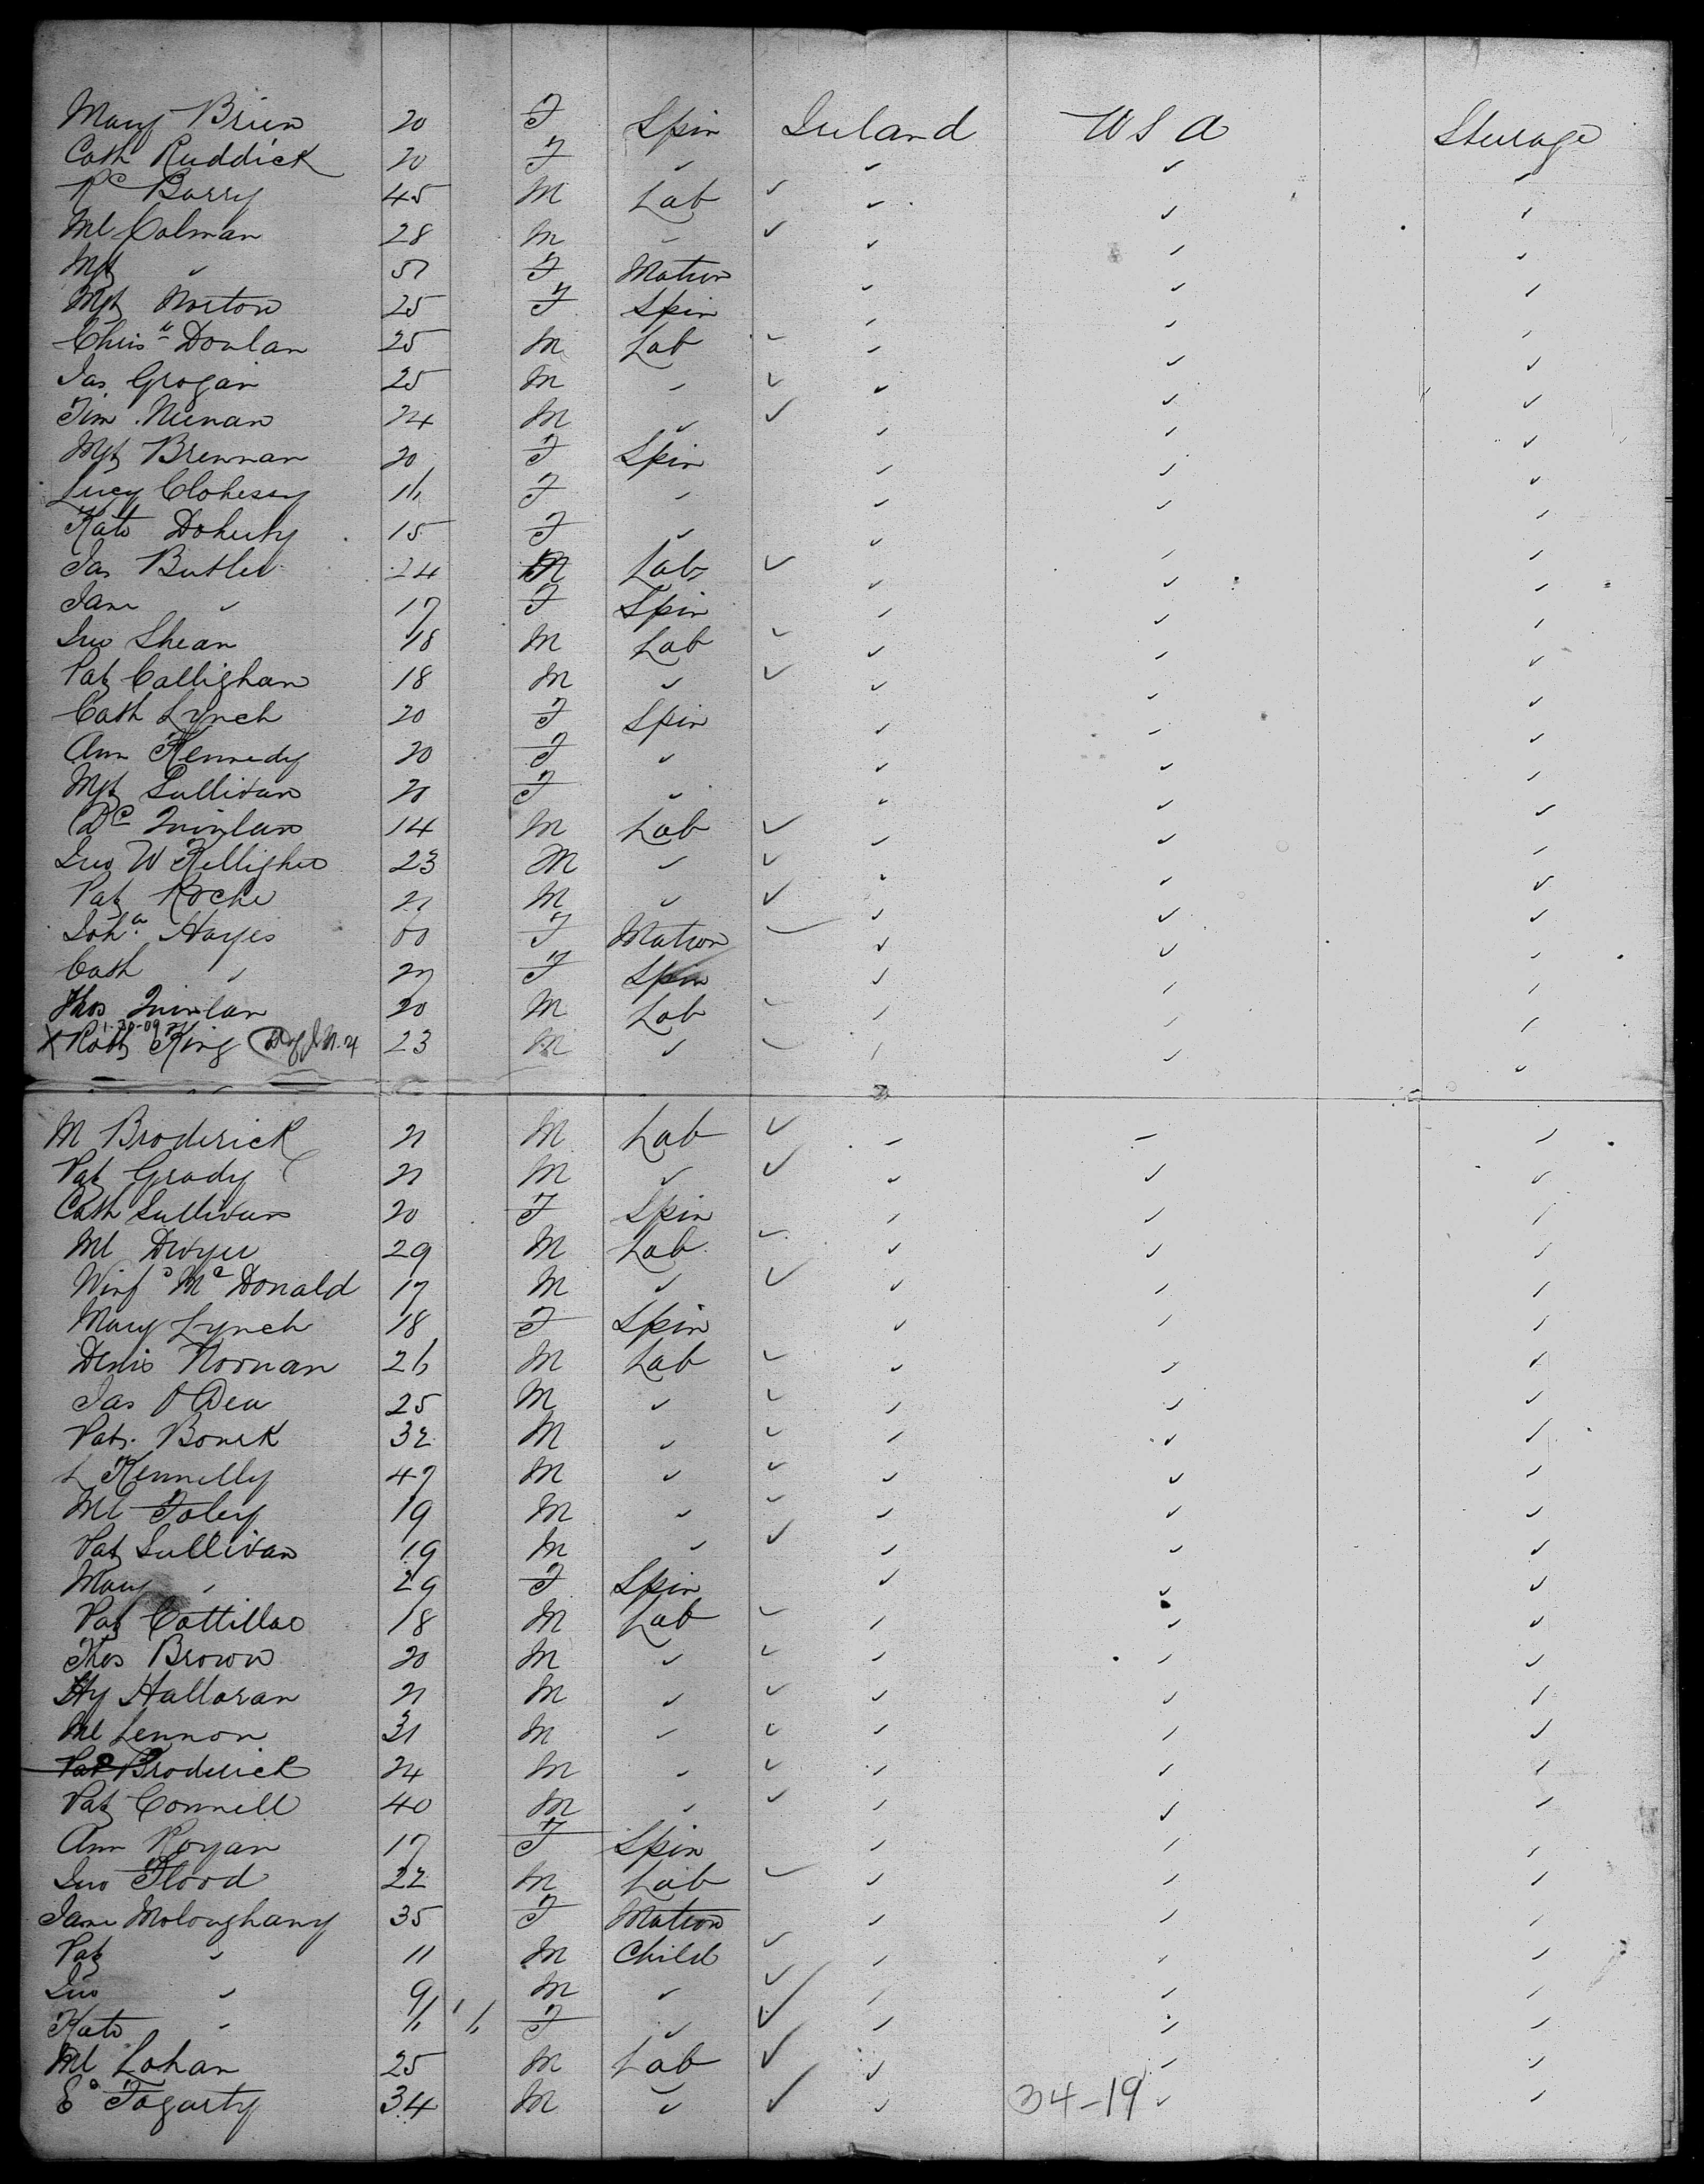 Mary Brien 20 F Spin Ireland USA Steerage
Cath Ruddick 20 F " " " "
Rd Barry 45 M Lab ✓ " " "
Ml Colman 28 M " ✓ " " "
Mgt " 57 F Matron " " "
Mgt Norton 25 F Spin " " "
Chrisr Donlan 25 M Lab ✓ " " "
Jas Grogan 25 M " ✓ " " "
Tim Neenan 24 M " ✓ " " "
Mgt Brennan 20 F Spin " " "
Lucy Clohessy 16 F " " " "
Kate Doherty 15 F " " " "
Jas Butler 24 M Lab ✓ " " "
Jane " 17 F Spin " " "
Jno Shean 18 M Lab ✓ " " "
Pat Callighan 18 M " ✓ " " "
Cath Lynch 20 F Spin " " "
Ann Kennedy 20 F " " " "
Mgt Sullivan 20 F " " " "
Quinlan 14 M Lab ✓ " " "
Jno W Kelligher 23 M " ✓ " " "
Pat Roche 21 M " ✓ " " "
Joha Hayes 60 F Matron ✓ " " "
Cath " 27 F Spin " " "
Thos Quinlan 20 M Lab ✓ " " "
1-30-09
X Patk King 23 M " ✓ " " "
M Broderick 21 M Lab ✓ " " "
Pat Grady 21 M " ✓ " " "
Cath Sullivan 20 F Spin " " "
Ml Dwyer 29 M Lab ✓ " " "
Winfd McDonald 17 M " ✓ " " "
Mary Lynch 18 F Spin " " "
Denis Noonan 26 M Lab ✓ " " "
Jas O Dea 25 M " ✓ " " "
Pat. Bourk 32 M " ✓ " " "
L Kennelly 47 M " ✓ " " "
Ml Foley 19 M " ✓ " " "
Pat Sullivan 19 M " ✓ " " "
Mary " 29 F Spin " " "
Pat Cottillae 18 M Lab ✓ " " "
Thos Brown 20 M " ✓ " " "
Hy Halloran 21 M " ✓ " " "
Ml Lennon 31 M " ✓ " " "
Pat Broderick 24 M " ✓ " " "
Pat Connell 40 M " ✓ " " "
Ann Royan 17 F Spin " " "
Jno Flood 22 M Lab ✓ " " "
Jane Moloughany 35 F Matron " " "
Pat " 11 M Child ✓ " " "
Jno " 9 M " ✓ " " "
Kate " F " ✓ " " "
Ml Lohan 25 M Lab ✓ " " "
Ed Fogarty 34 M " ✓ " 34-19 " "